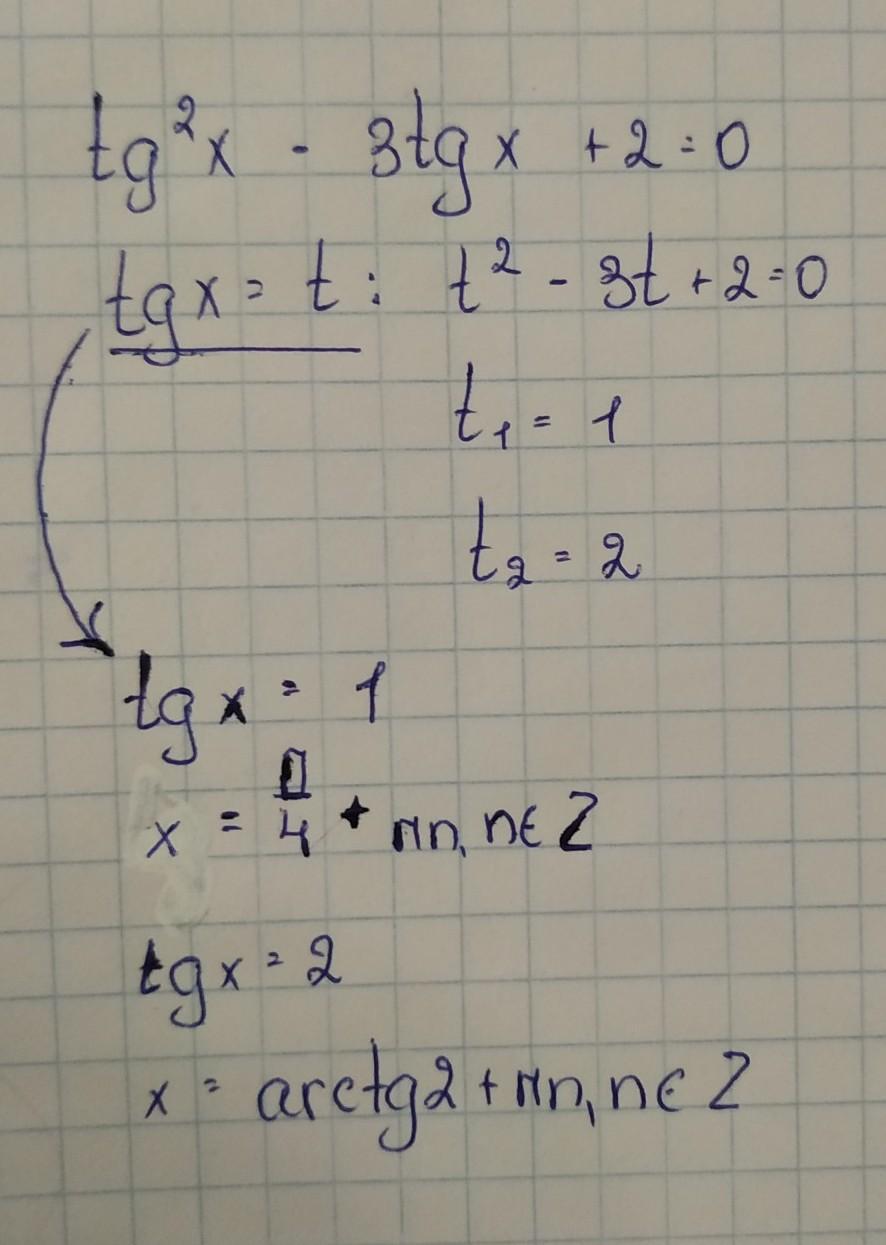 tg²x - 3tgx + 2 = 0
tgx = t: t² - 3t + 2 = 0
t₁ = 1
t₂ = 2
tgx = 1
x = π/4 + πn, n∈Z
tgx = 2
x = arctg2 + πn, n∈Z